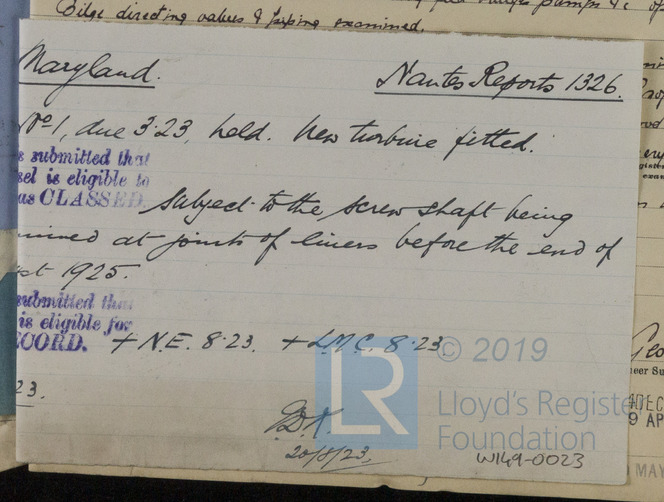 Bilge directing valves & piping examined.
Maryland.
Nantes Reports 1326.
No 1, due 3.23, held. New turbine fitted.
submitted that
is eligible to
as CLASSED. subject to the screw shaft being
at joints of liners before the end of
1925.
submitted that
is eligible for
+ N.E. 8.23. + L.M.C. 8.23
© 2019
LR
Lloyd's Register
Foundation
23.
20/8/23.
W149-0023
DEC
9 AP
MAY